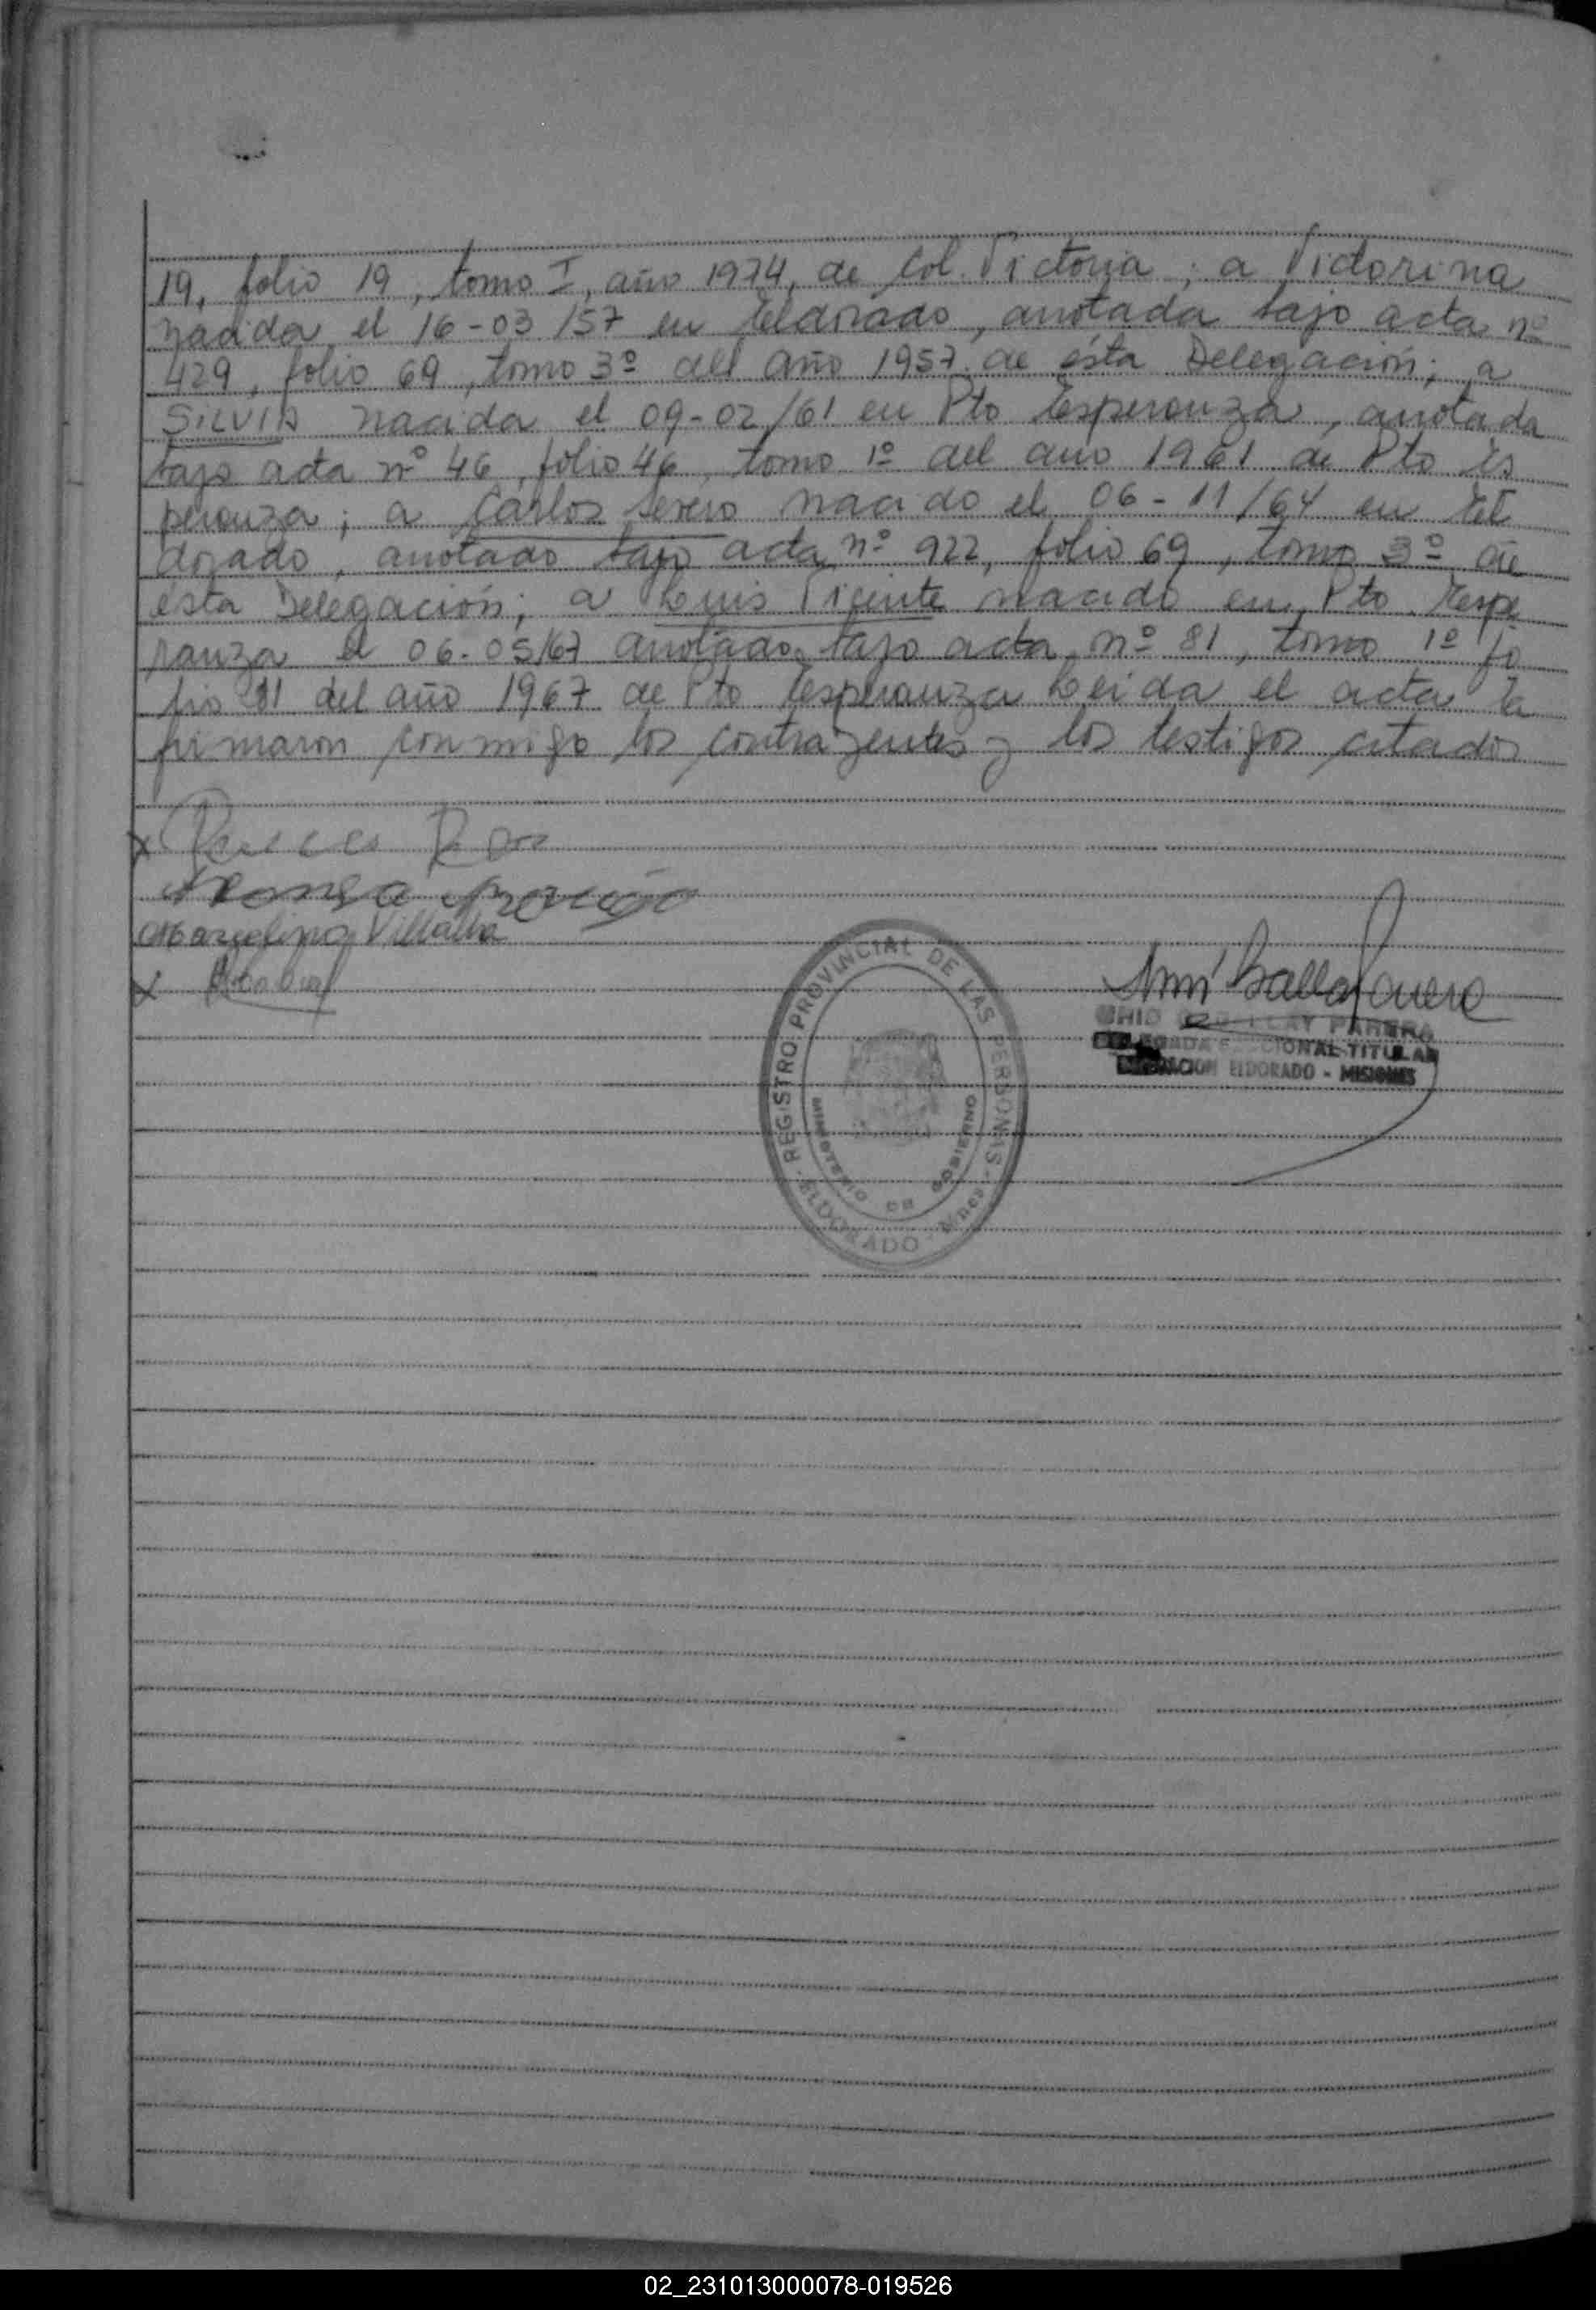 19, folio 19, tomo I, año 1974, de Col. Victoria; a Victorina
nacida el 16-03/57 en Eldorado, anotada bajo acta nº
429, folio 69, tomo 3º del año 1957 de ésta Delegación; a
SILVIA nacida el 09-02/61 en Pto Esperanza, anotada
bajo acta nº 46, folio 46, tomo 1º del año 1961 de Pto Es
peranza; a Carlos Severo nacido el 06-11/64 en El
dorado, anotado bajo acta nº 922, folio 69, tomo 3º de
ésta Delegación; a Luis Vicente nacido en Pto Espe
ranza el 06-05/67 anotado bajo acta nº 81, tomo 1º fo
lio 81 del año 1967 de Pto Esperanza Leida el acta la
firmaron conmigo los contrayentes y los testigos citados
Marcelino Villalba
REGISTRO PROVINCIAL DE LAS PERSONAS - ELDORADO - Mnes
MINISTERIO DE GOBIERNO
PARERA
TITULAR
ELDORADO - MISIONES
02_231013000078-019526